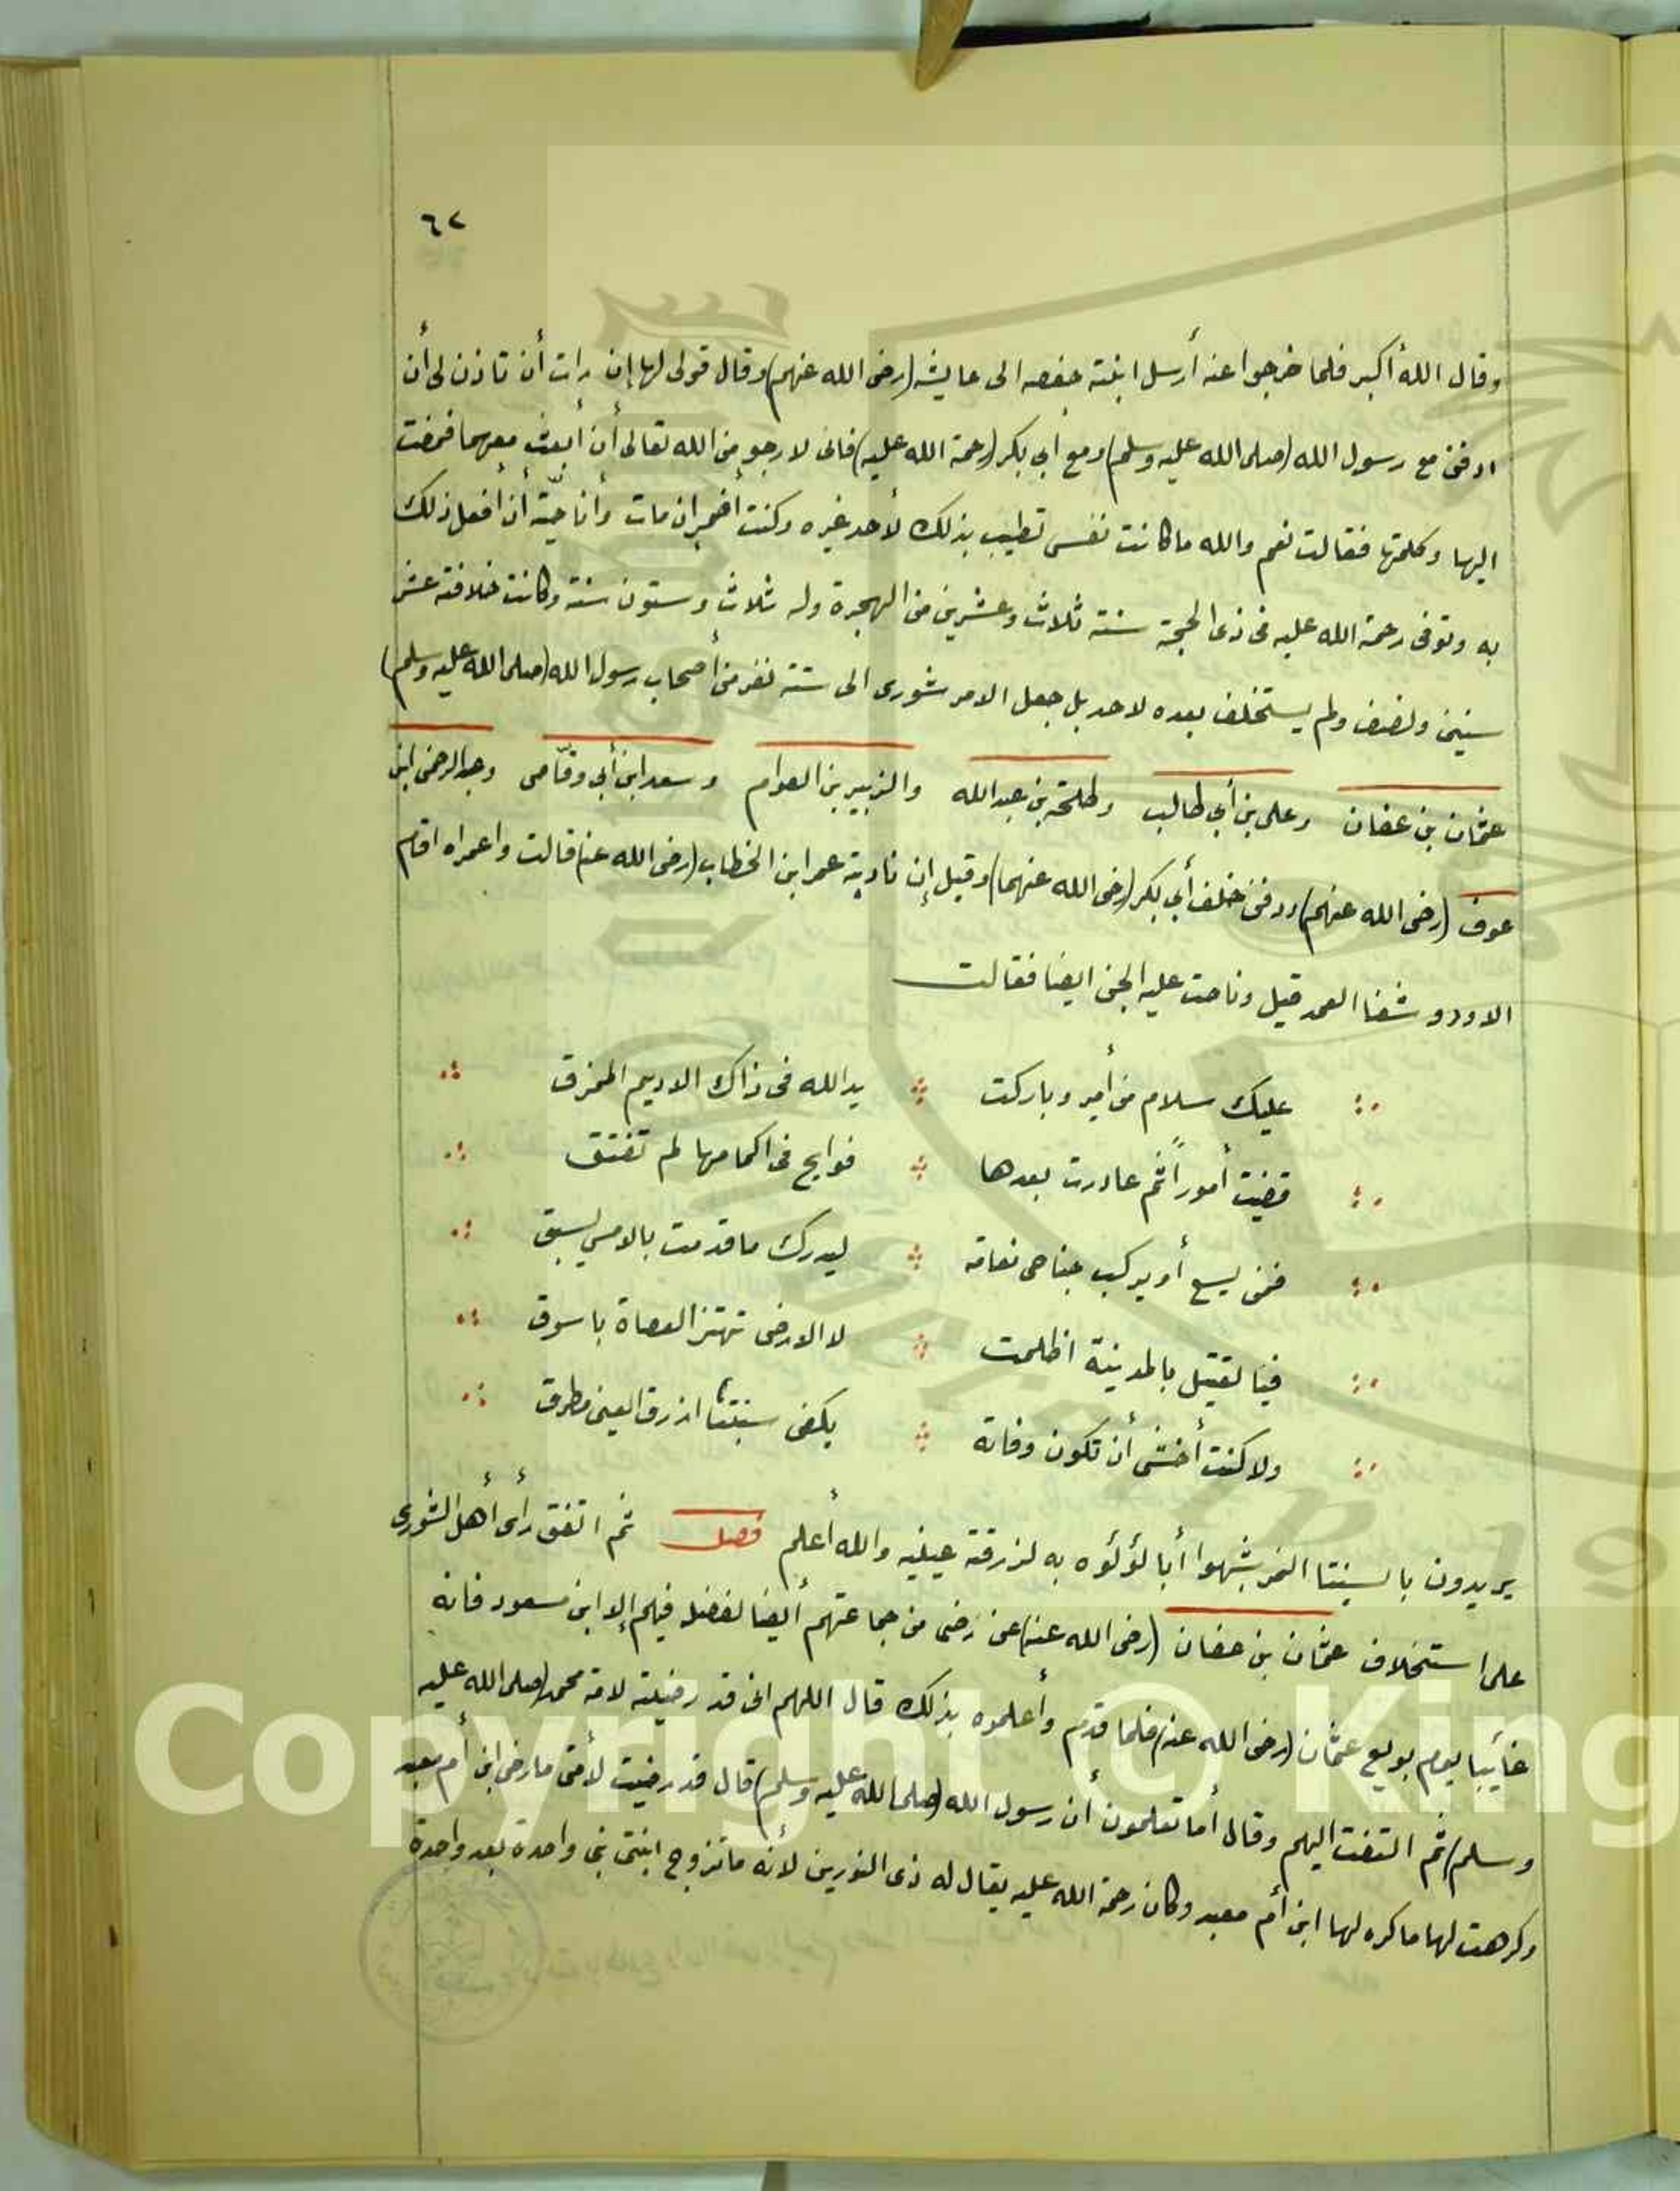 ٦٢
وقال الله أكبر فلما خرجوا عنه أرسل ابنته حفصه الى عايشه (رضى الله عنهم) وقال قولى لها إن رات أن تاذن لى أن
ادفن مع رسول الله (صلى الله عليه وسلم) ومع أبي بكر (رحمة الله عليه) فانى لارجو من الله تعالى أن أبعث معهما فمضت
اليها وكلمتها فقالت نعم والله ما كانت نفسى تطيب بذلك لأحد غيره وكنت أضمر ان مات وأنا حيّة أن أفعل ذلك
به وتوفى رحمة الله عليه فى ذى الحجة سنة ثلاث وعشرين من الهجرة وله ثلاث وستون سنة وكانت خلافته عشر
سنين ونصف ولم يستخلف بعده لاحد بل جعل الامر شورى الى ستة نفر من أصحاب رسول الله (صلى الله عليه وسلم)
عثمان بن عفان وعلى بن أبي طالب وطلحة بن عبدالله والزبير بن العوام وسعد ابن أبي وقّاص وعبد الرحمن ابن
عوف (رضى الله عنهم) ودفن خلف أبي بكر (رضى الله عنهما) وقيل إن نادبة عمر ابن الخطاب (رضى الله عنه) قالت واعمراه اقام
الاود وشفا العمد قيل وناحت عليه الجن ايضا فقالت
عليك سلام من أمير وباركت يد الله فى ذاك الاديم الممزق
قضيت أموراً ثم غادرت بعدها فوايح فى اكمامها لم تفتق
فمن يسع أو يركب جناحى نعامة ليدرك ما قدمت بالامس يسبق
فيا لقتيل بالمدينة اظلمت لا الارض تهتز العصاة باسوق
ولا كنت أخشى أن تكون وفاته بكفى سبنتا ازرق العين مطرق
يريدون بالسبنتا النمر شبهوا أبا لؤلؤه به لزرقة عينيه والله أعلم فصل ثم اتفق رأى أهل الشورى
على استخلاف عثمان بن عفان (رضى الله عنه) عن رضى من جماعتهم أيضا لفضله فيهم إلا ابن مسعود فانه
غايبا يوم بويع عثمان (رضى الله عنه) فلما قدم وأعلموه بذلك قال اللهم انى قد رضيته لامة محمد (صلى الله عليه
وسلم) ثم التفت اليهم وقال أما تعلمون أن رسول الله (صلى الله عليه وسلم) قال قد رضيت لأمتى ما رضى ابن أم معبد
وكرهت لها ما كره لها ابن أم معبد وكان رحمة الله عليه يقال له ذى النورين لأنه ما تزوج ابنتى نبى واحدة بعد واحدة
Copyright © King